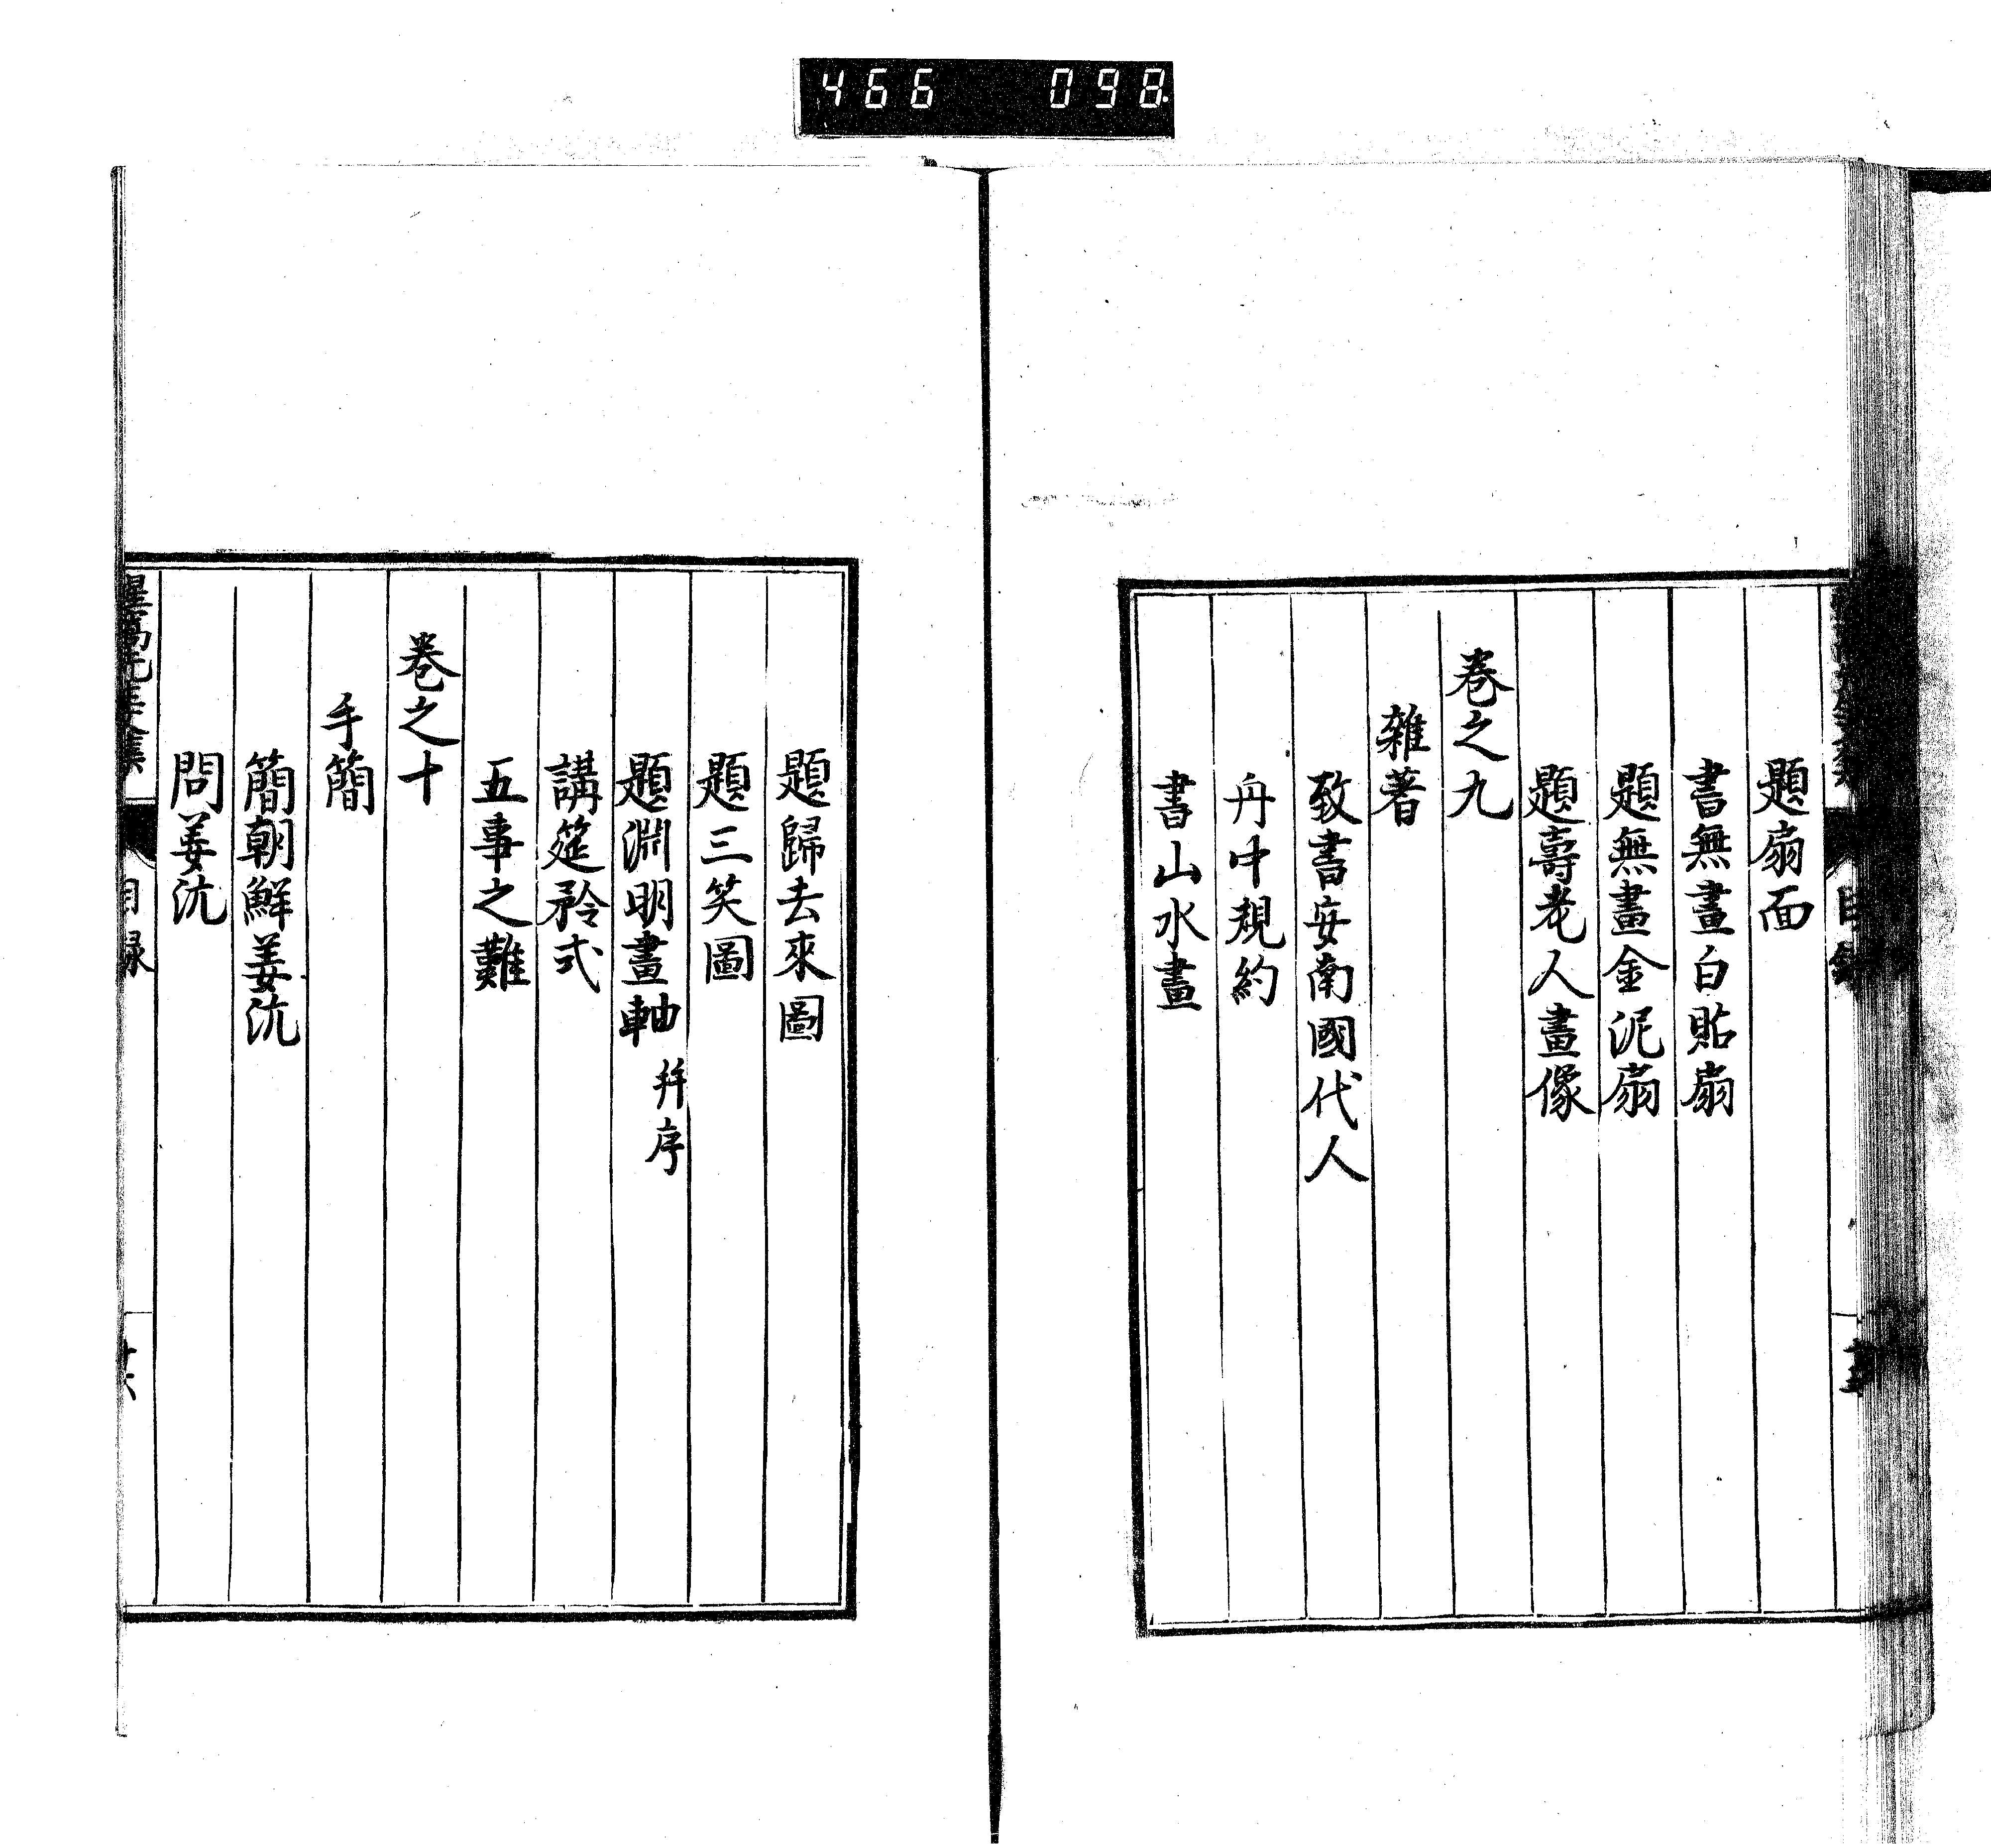 466 098
題扇面
書無畫白貼扇
題無畫金泥扇
題壽老人畫像
卷之九
雜著
致書安南國代人
舟中規約
書山水畫
題歸去來圖
題三笑圖
題淵明畫軸 并序
講筵矜式
五事之難
卷之十
手簡
簡朝鮮姜沆
問姜沆
目録